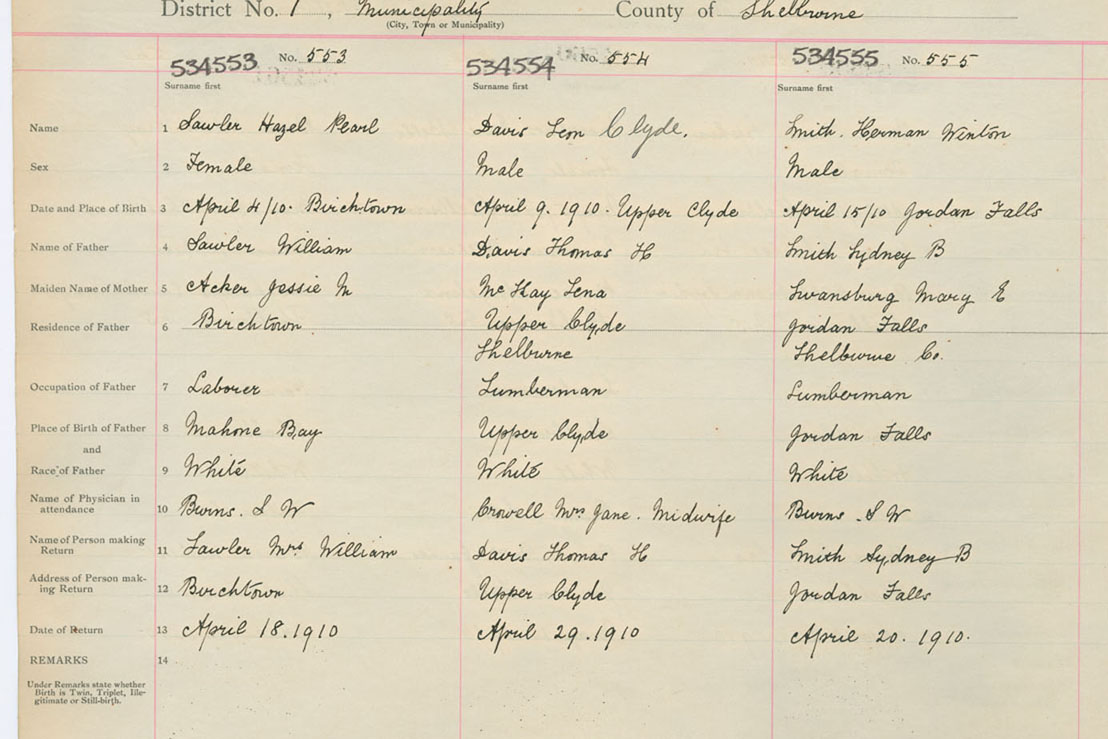 District No. 1, Municipality County of Shelburne
(City, Town or Municipality)
534553 No. 553 534554 No. 554 534555 No. 555
Surname first Surname first Surname first
Name 1 Sawler Hazel Pearl Davis Leon Clyde. Smith. Herman Winton
Sex 2 Female Male Male
Date and Place of Birth 3 April 4/10. Birchtown April 9. 1910. Upper Clyde April 15/10 Jordan Falls
Name of Father 4 Sawler William Davis Thomas H Smith Sydney B
Maiden Name of Mother 5 Acker Jessie M Mc Kay Lena Swansburg Mary E
Residence of Father 6 Birchtown Upper Clyde Jordan Falls
Shelburne Shelburne Co.
Occupation of Father 7 Laborer Lumberman Lumberman
Place of Birth of Father 8 Mahone Bay Upper Clyde Jordan Falls
and
Race of Father 9 White White White
Name of Physician in
attendance 10 Burns. S W Crowell Mrs Jane. Midwife Burns. S W
Name of Person making
Return 11 Sawler Mrs William Davis Thomas H Smith Sydney B
Address of Person mak-
ing Return 12 Birchtown Upper Clyde Jordan Falls
Date of Return 13 April 18. 1910 April 29. 1910 April 20. 1910.
REMARKS 14
Under Remarks state whether
Birth is Twin, Triplet, Ille-
gitimate or Still-birth.